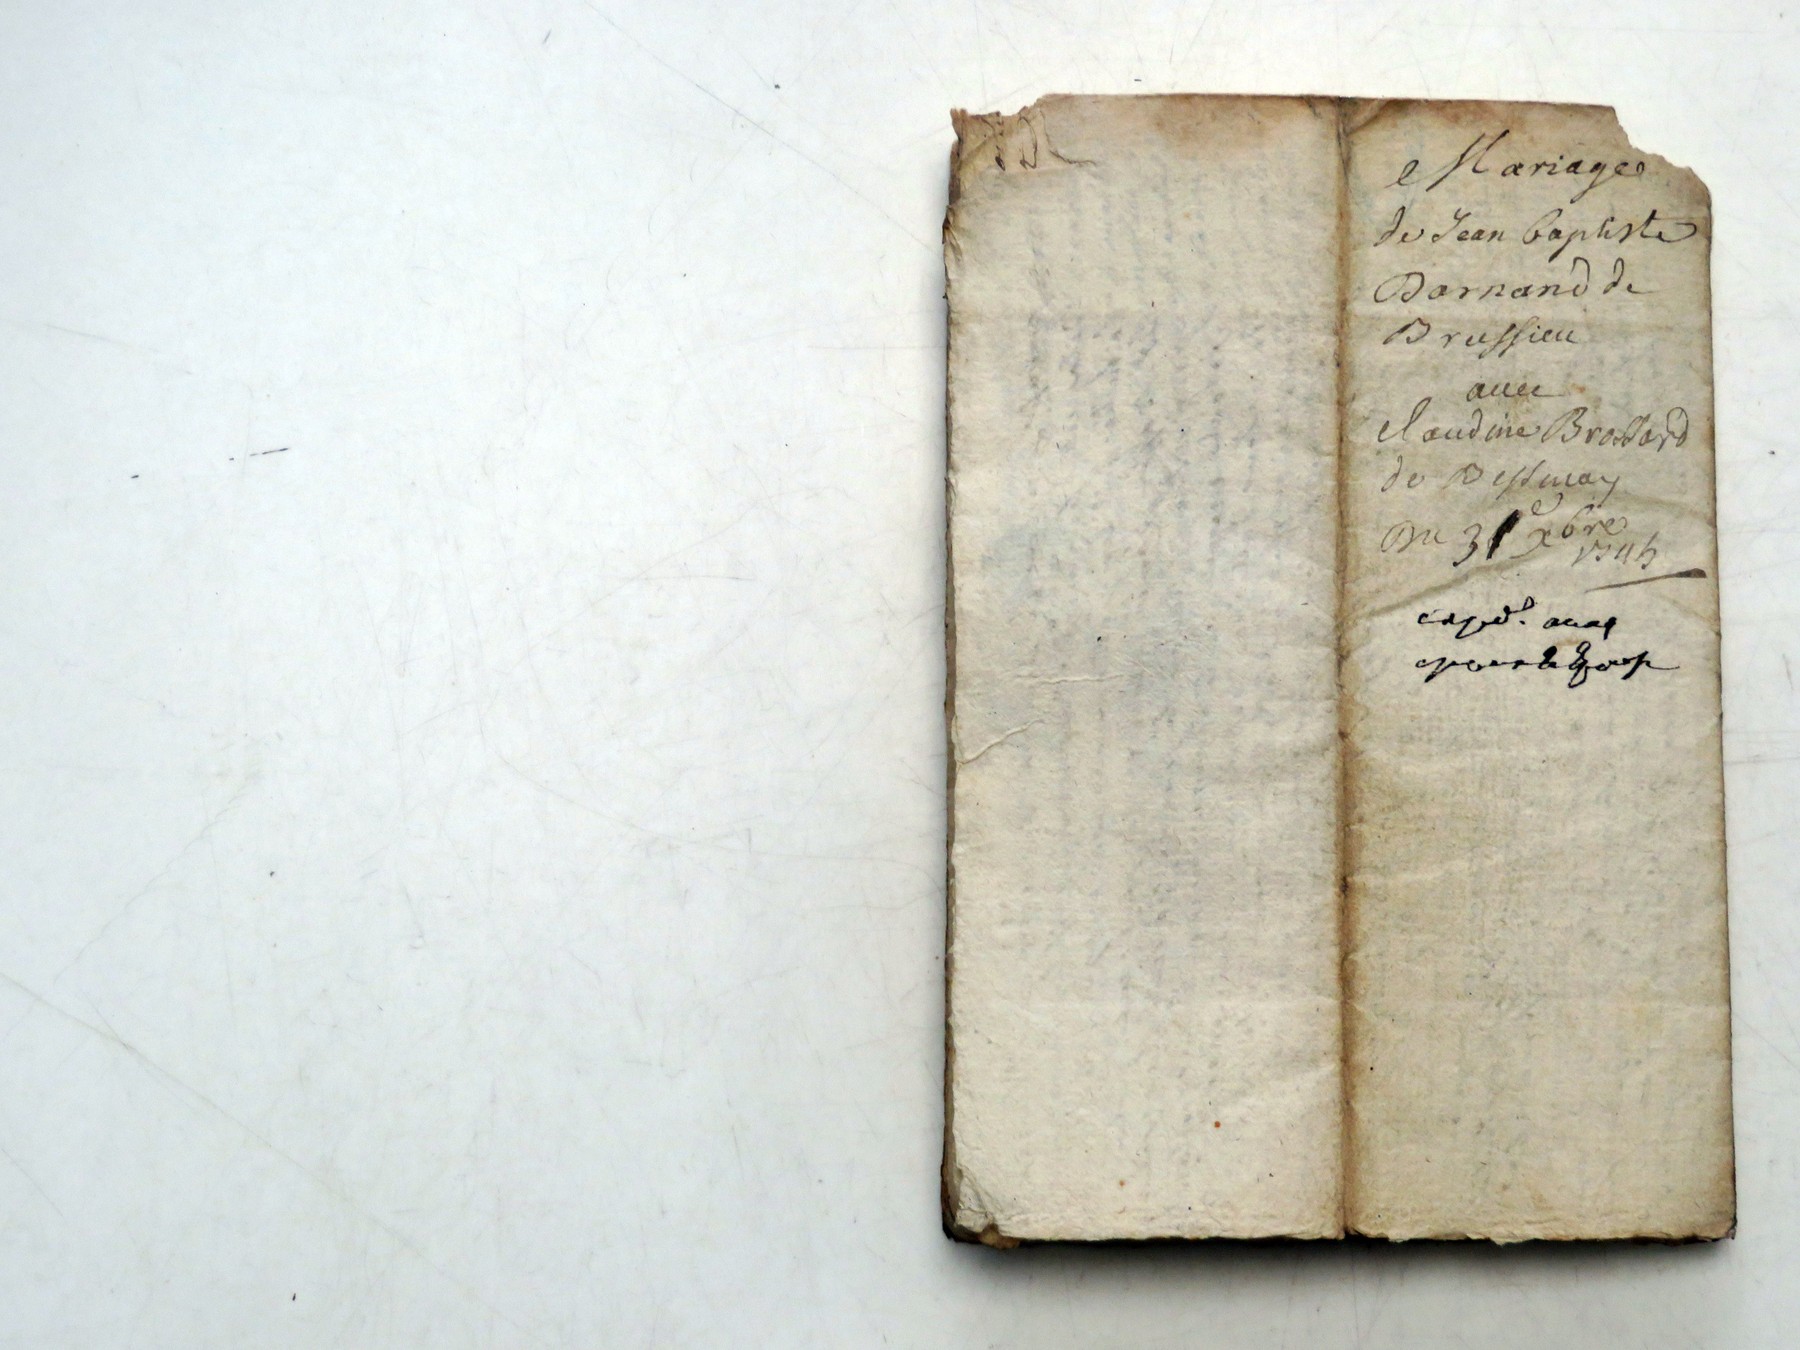 Mariage
de Jean baptiste
Barnand de
Brussieu
avec
Claudine Brossard
de Bessenay
Du 31e xbre
expéd.